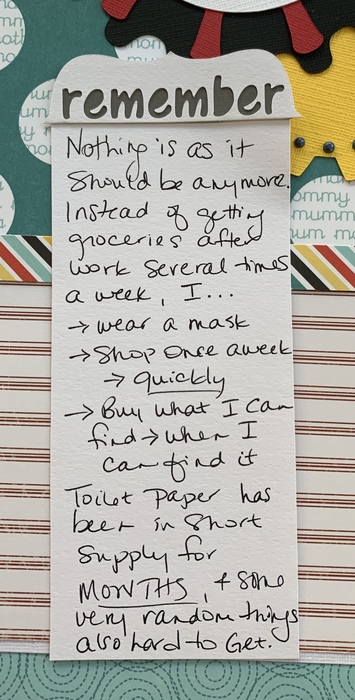 remember
Nothing is as it
Should be anymore.
Instead of getting
groceries after
work several times
a week, I...
→ wear a mask
→ Shop Once a week
→ quickly
→ Buy what I can
find → when I
can find it
Toilet Paper has
been in short
supply for
MONTHS, & some
very random things
also hard to Get.